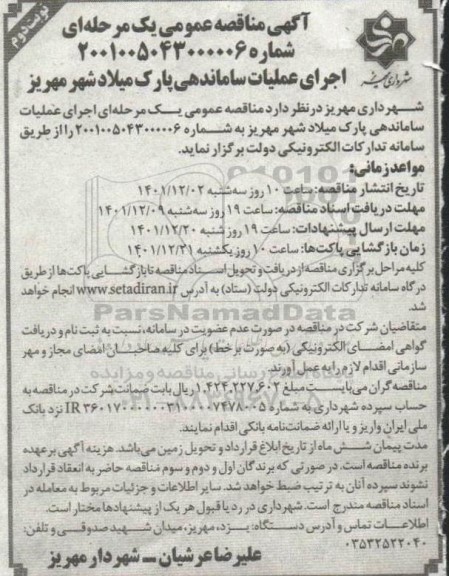 نوبت دوم
آگهی مناقصه عمومی یک مرحله‌ای
شماره ۲۰۰۱۰۰۵۰۴۳۰۰۰۰۰۶
اجرای عملیات ساماندهی پارک میلاد شهر مهریز
شهرداری مهریز
شهرداری مهریز در نظر دارد مناقصه عمومی یک مرحله‌ای اجرای عملیات
ساماندهی پارک میلاد شهر مهریز به شماره ۲۰۰۱۰۰۵۰۴۳۰۰۰۰۰۶ را از طریق
سامانه تدارکات الکترونیکی دولت برگزار نماید.
مواعد زمانی:
تاریخ انتشار مناقصه: ساعت ۱۰ روز سه‌شنبه ۱۴۰۱/۱۲/۰۲
مهلت دریافت اسناد مناقصه: ساعت ۱۹ روز سه‌شنبه ۱۴۰۱/۱۲/۰۹
مهلت ارسال پیشنهادات: ساعت ۱۹ روز شنبه ۱۴۰۱/۱۲/۲۰
زمان بازگشایی پاکت‌ها: ساعت ۱۰ روز یکشنبه ۱۴۰۱/۱۲/۲۱
کلیه مراحل برگزاری مناقصه از دریافت و تحویل اسناد مناقصه تا بازگشایی پاکت‌ها از طریق
درگاه سامانه تدارکات الکترونیکی دولت (ستاد) به آدرس www.setadiran.ir انجام خواهد
شد.
ParsNamadData
متقاضیان شرکت در مناقصه در صورت عدم عضویت در سامانه، نسبت به ثبت نام و دریافت
گواهی امضای الکترونیکی (به صورت برخط) برای کلیه صاحبان امضای مجاز و مهر
سازمانی اقدام لازم را به عمل آورند.
مناقصه گران می‌بایست مبلغ ۱،۴۲۴،۲۲۷،۶۰۲ ریال بابت ضمانت شرکت در مناقصه به
حساب سپرده شهرداری به شماره IR نزد بانک
ملی ایران واریز و یا ارائه ضمانت‌نامه بانکی اقدام نمایند.
مدت پیمان شش ماه از تاریخ ابلاغ قرارداد و تحویل زمین می‌باشد. هزینه آگهی بر عهده
برنده مناقصه است. در صورتی که برندگان اول و دوم و سوم مناقصه حاضر به انعقاد قرارداد
نشوند سپرده آنان به ترتیب ضبط خواهد شد. سایر اطلاعات و جزئیات مربوط به معامله در
اسناد مناقصه مندرج است. شهرداری در رد یا قبول هر یک از پیشنهادها مختار است.
اطلاعات تماس و آدرس دستگاه: یزد، مهریز، میدان شهید صدوقی و تلفن:
۰۳۵۳۲۵۲۲۰۴۰
علیرضا عرشیان ــ شهردار مهریز